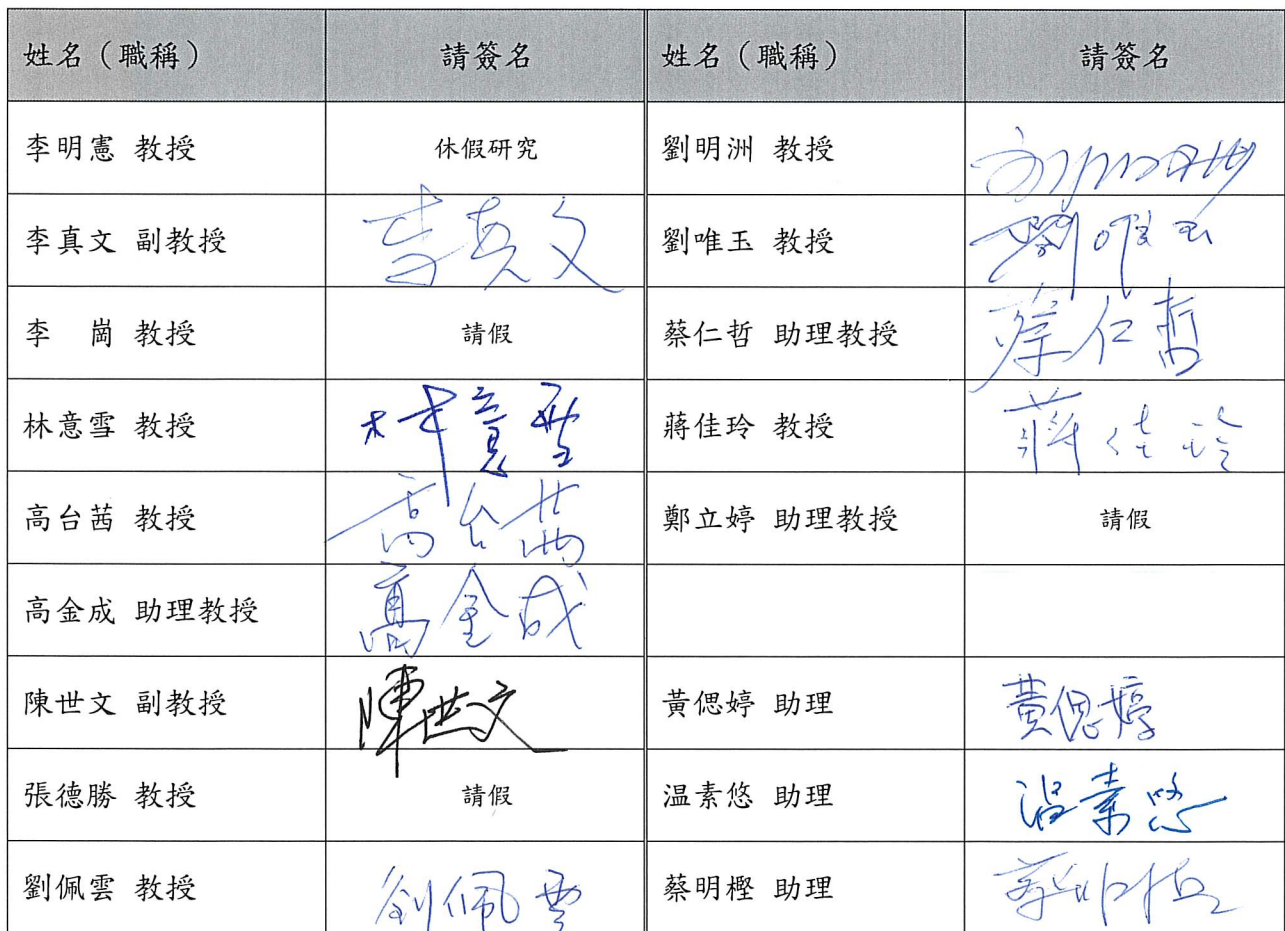 姓名（職稱） 請簽名 姓名（職稱） 請簽名
李明憲 教授 休假研究 劉明洲 教授 劉明洲
李真文 副教授 李真文 劉唯玉 教授 劉唯玉
李　崗 教授 請假 蔡仁哲 助理教授 蔡仁哲
林意雪 教授 林意雪 蔣佳玲 教授 蔣佳玲
高台茜 教授 高台茜 鄭立婷 助理教授 請假
高金成 助理教授 高金成
陳世文 副教授 陳世文 黃偲婷 助理 黃偲婷
張德勝 教授 請假 温素悠 助理 温素悠
劉佩雲 教授 劉佩雲 蔡明樫 助理 蔡明樫